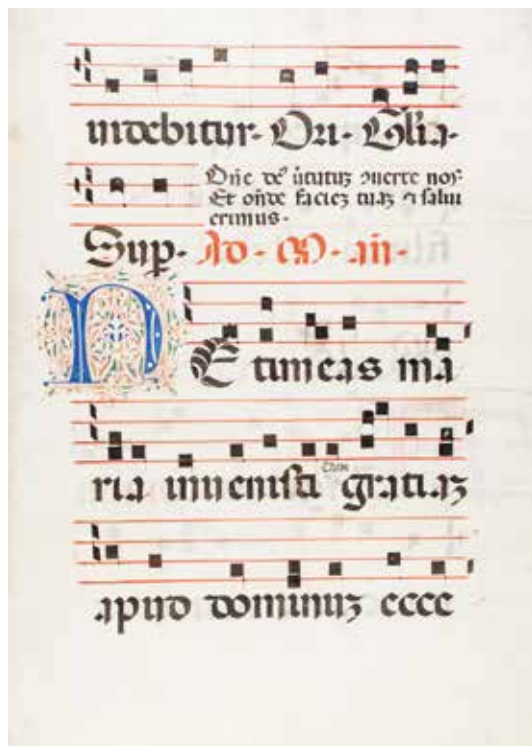 indebitur· Ori· Glia·
Dñe de' ůtutuʒ ɔuerte nos·
Et oñde faciez tuaʒ ⁊ salui
erimus·
Sup· Ad· M· añ·
NE timeas ma
ria inuenisti gratiaʒ
apud dominuʒ ecce